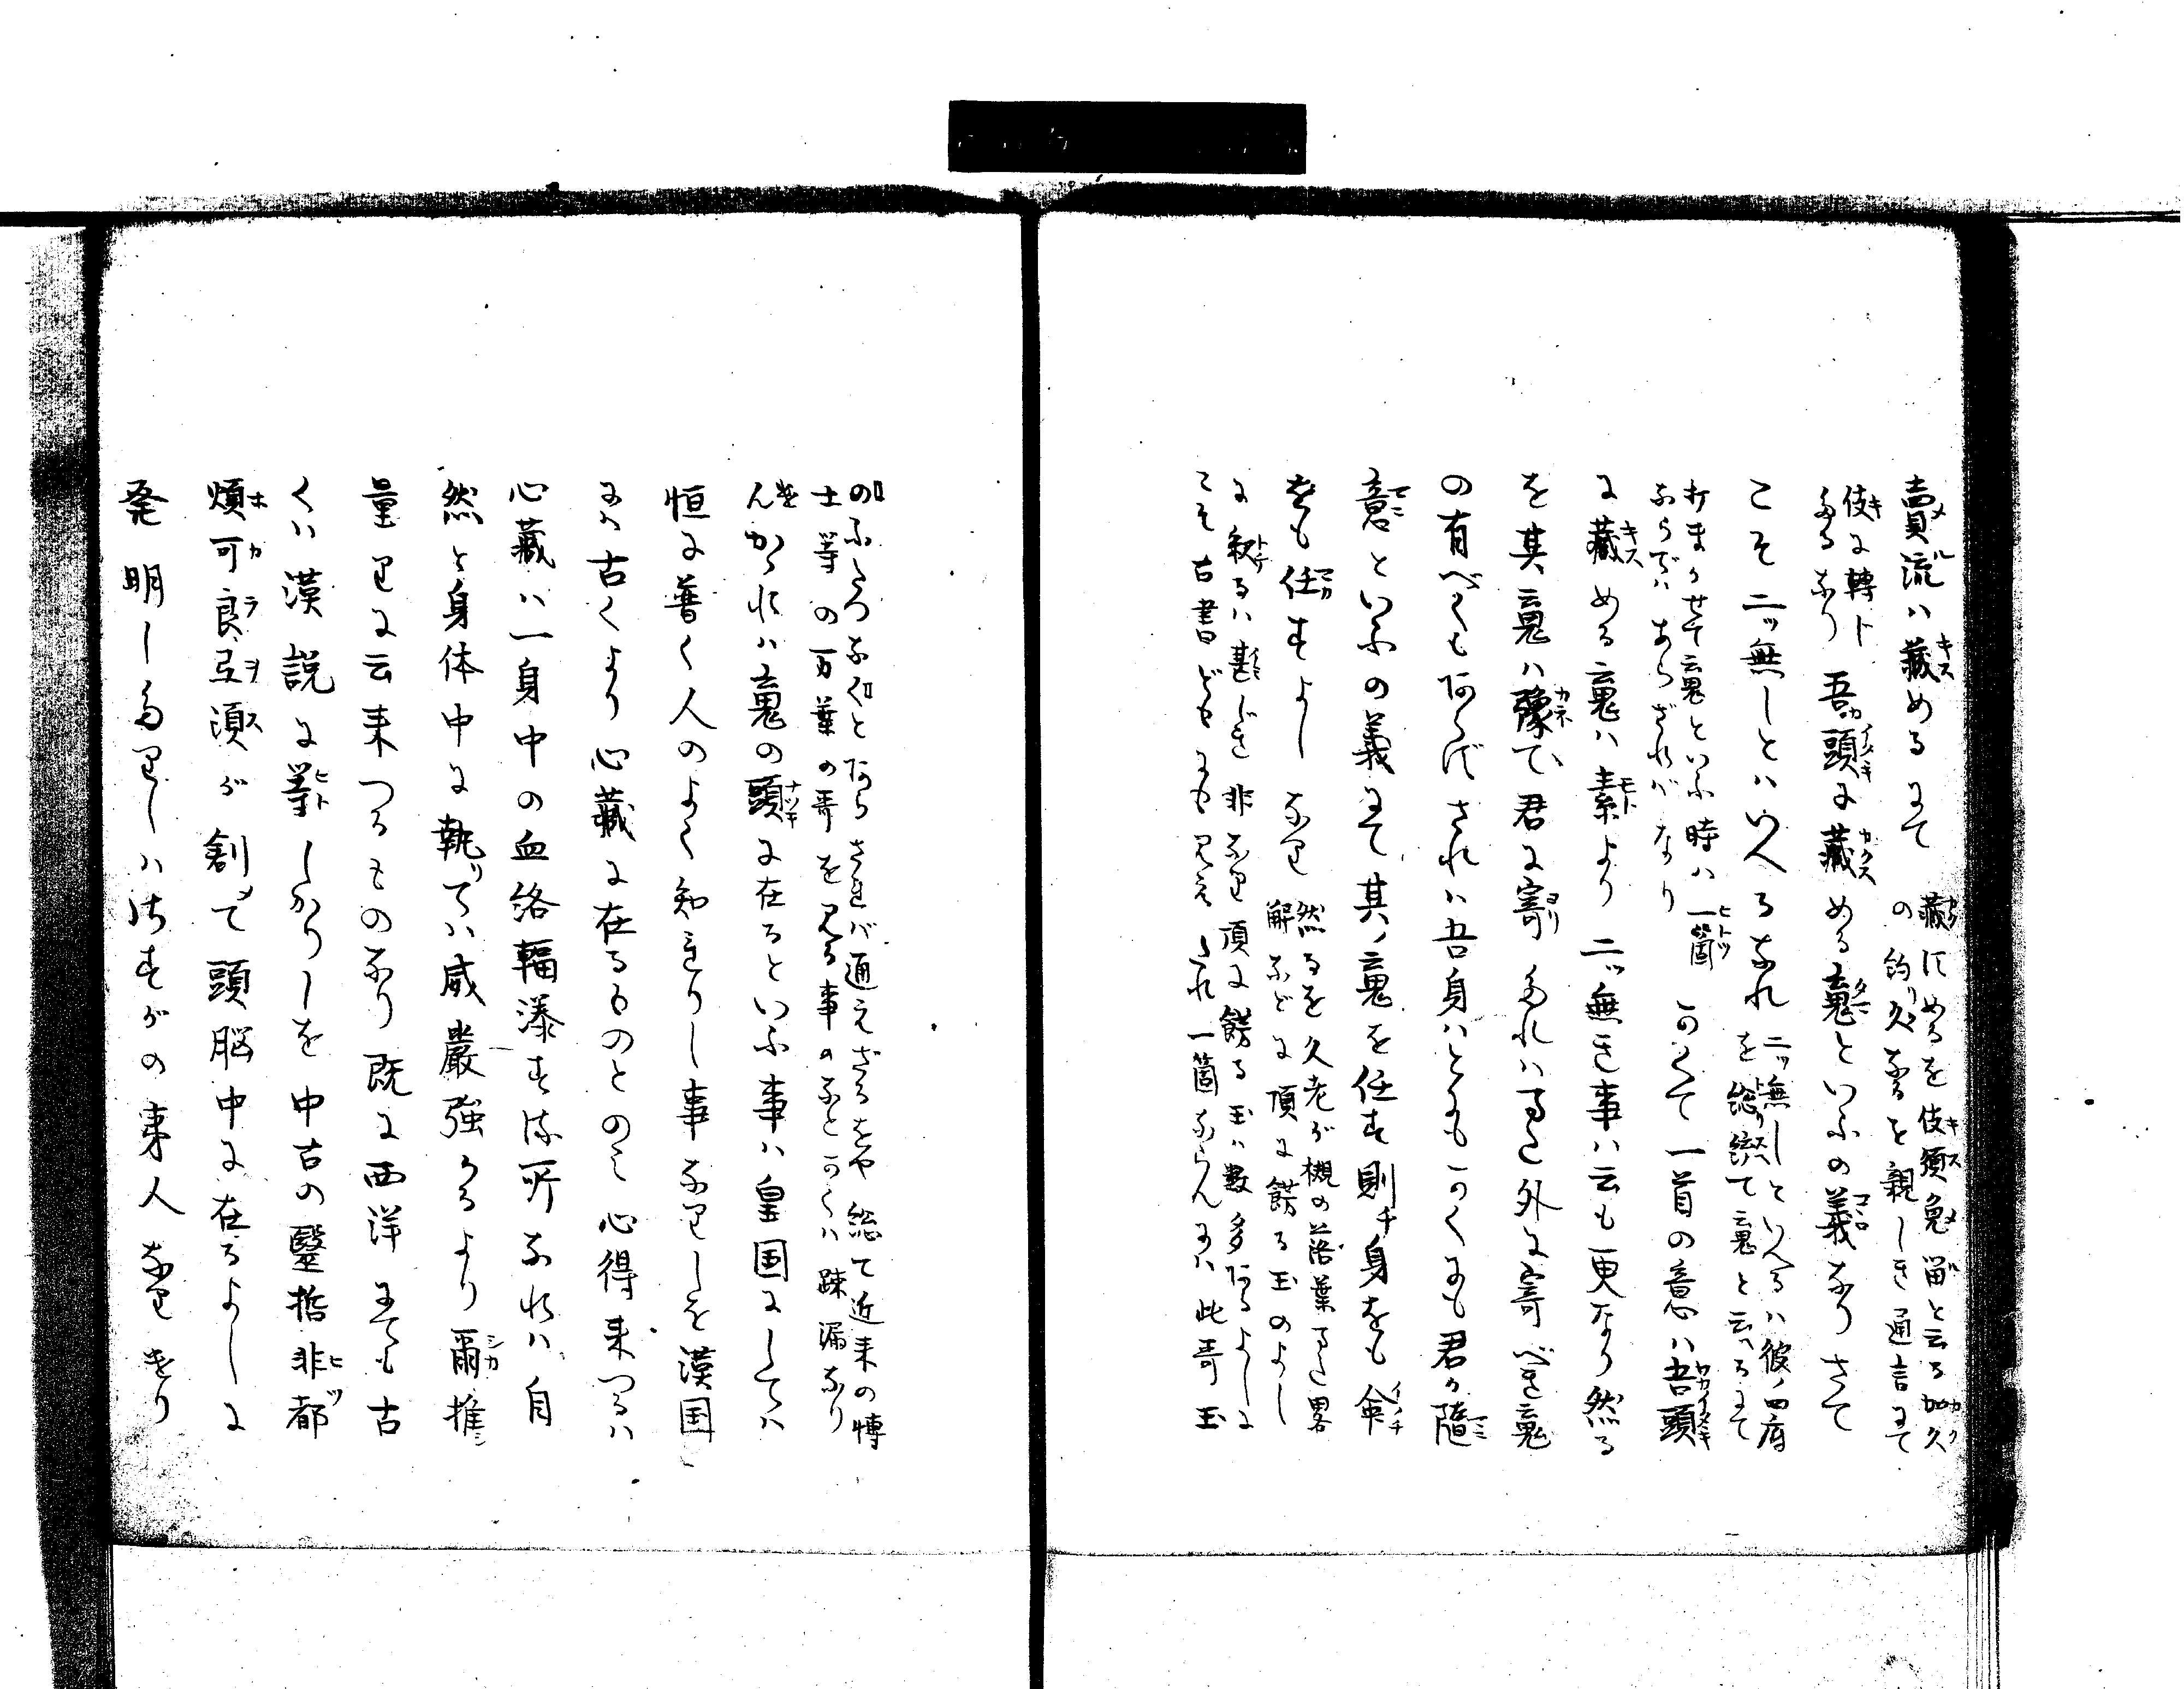 賣流ハ藏めるにて
藏にめるを伎須賣留と云る加久
の約久なるを親しき通言にて
伎に轉ト
たるなり
吾頭に藏める䰟といふの義なりさて
こそ二ッ無しとハいへるなれ
二ッ無しといへるハ彼ノ四府
を総ヘ統て䰟と云へるにて
わまかせて䰟といふ時ハ一箇
ならでハあらざれバなり
かくて一首の意ハ吾頭
に藏める䰟ハ素より二ッ無き事ハ云も更なり然る
を其䰟ハ豫て君に寄りたれハまた外に寄べき䰟
の有べくもあらずされハ吾身ハともかくも君が隨
意といふの義にて其ノ䰟を任せ則チ身をも命
をも任すよしなり
然るを久老が槻の落葉また畧
解などに頂に餝る玉のよし
に釈るハ甚じき非なり頂に餝る玉ハ数多あるよしに
こそ古書どもにも見えたれ一箇ならんにハ此哥玉
のふたつなくとあらされバ通えざるをや総て近来の博
士等の万葉の哥を見る事のなとかくハ疎漏なり
んを
かゝれハ䰟の頭に在るといふ事ハ皇国にしてハ
恒に普く人のよく知れりし事なりしを漢国
にハ古くより心藏に在るものとのミ心得来つるハ
心藏ハ一身中の血絡輻湊する所なれハ自
然と身体中に執りてハ威嚴強かるより爾推シ
量りに云来つるものなり既に西洋にても古
くハ漢説に等しかりしを中古の毉哲非都
煩可良弖須が創メて頭脳中に在るよしに
発明したりしハはるかの来人なりけり